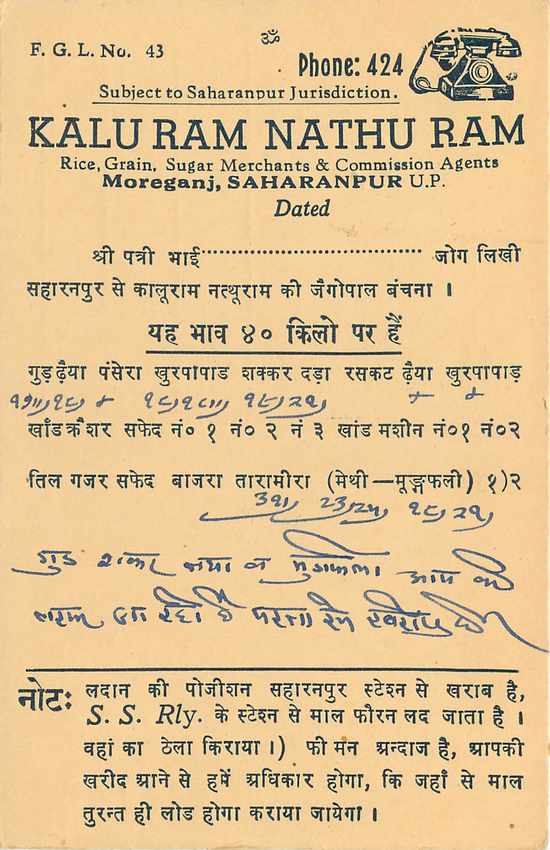 ॐ
F. G. L. No. 43
Phone: 424
Subject to Saharanpur Jurisdiction.
KALU RAM NATHU RAM
Rice, Grain, Sugar Merchants & Commission Agents
Moreganj, SAHARANPUR U.P.
Dated
श्री पत्री भाई...................................... जोग लिखी
सहारनपुर से कालूराम नत्थूराम की जैगोपाल बंचना ।
यह भाव ४० किलो पर हैं
गुड़ ढ़ैया पंसेरा खुरपापाड शक्कर दड़ा रसकट ढ़ैया खुरपापाड़
खाँड क्रैशर सफेद नं० १ नं० २ नं ३ खांड मशीन नं०१ नं०२
तिल गजर सफेद बाजरा तारामीरा (मेथी—मूङ्गफली) १)२
गुड शकर नया व
आप की
नोट: लदान की पोजीशन सहारनपुर स्टेशन से खराब है,
S. S. Rly. के स्टेशन से माल फौरन लद जाता है ।
वहां का ठेला किराया ।) फी मन अन्दाज है, आपकी
खरीद आने से हमें अधिकार होगा, कि जहाँ से माल
तुरन्त ही लोड होगा कराया जायेगा ।